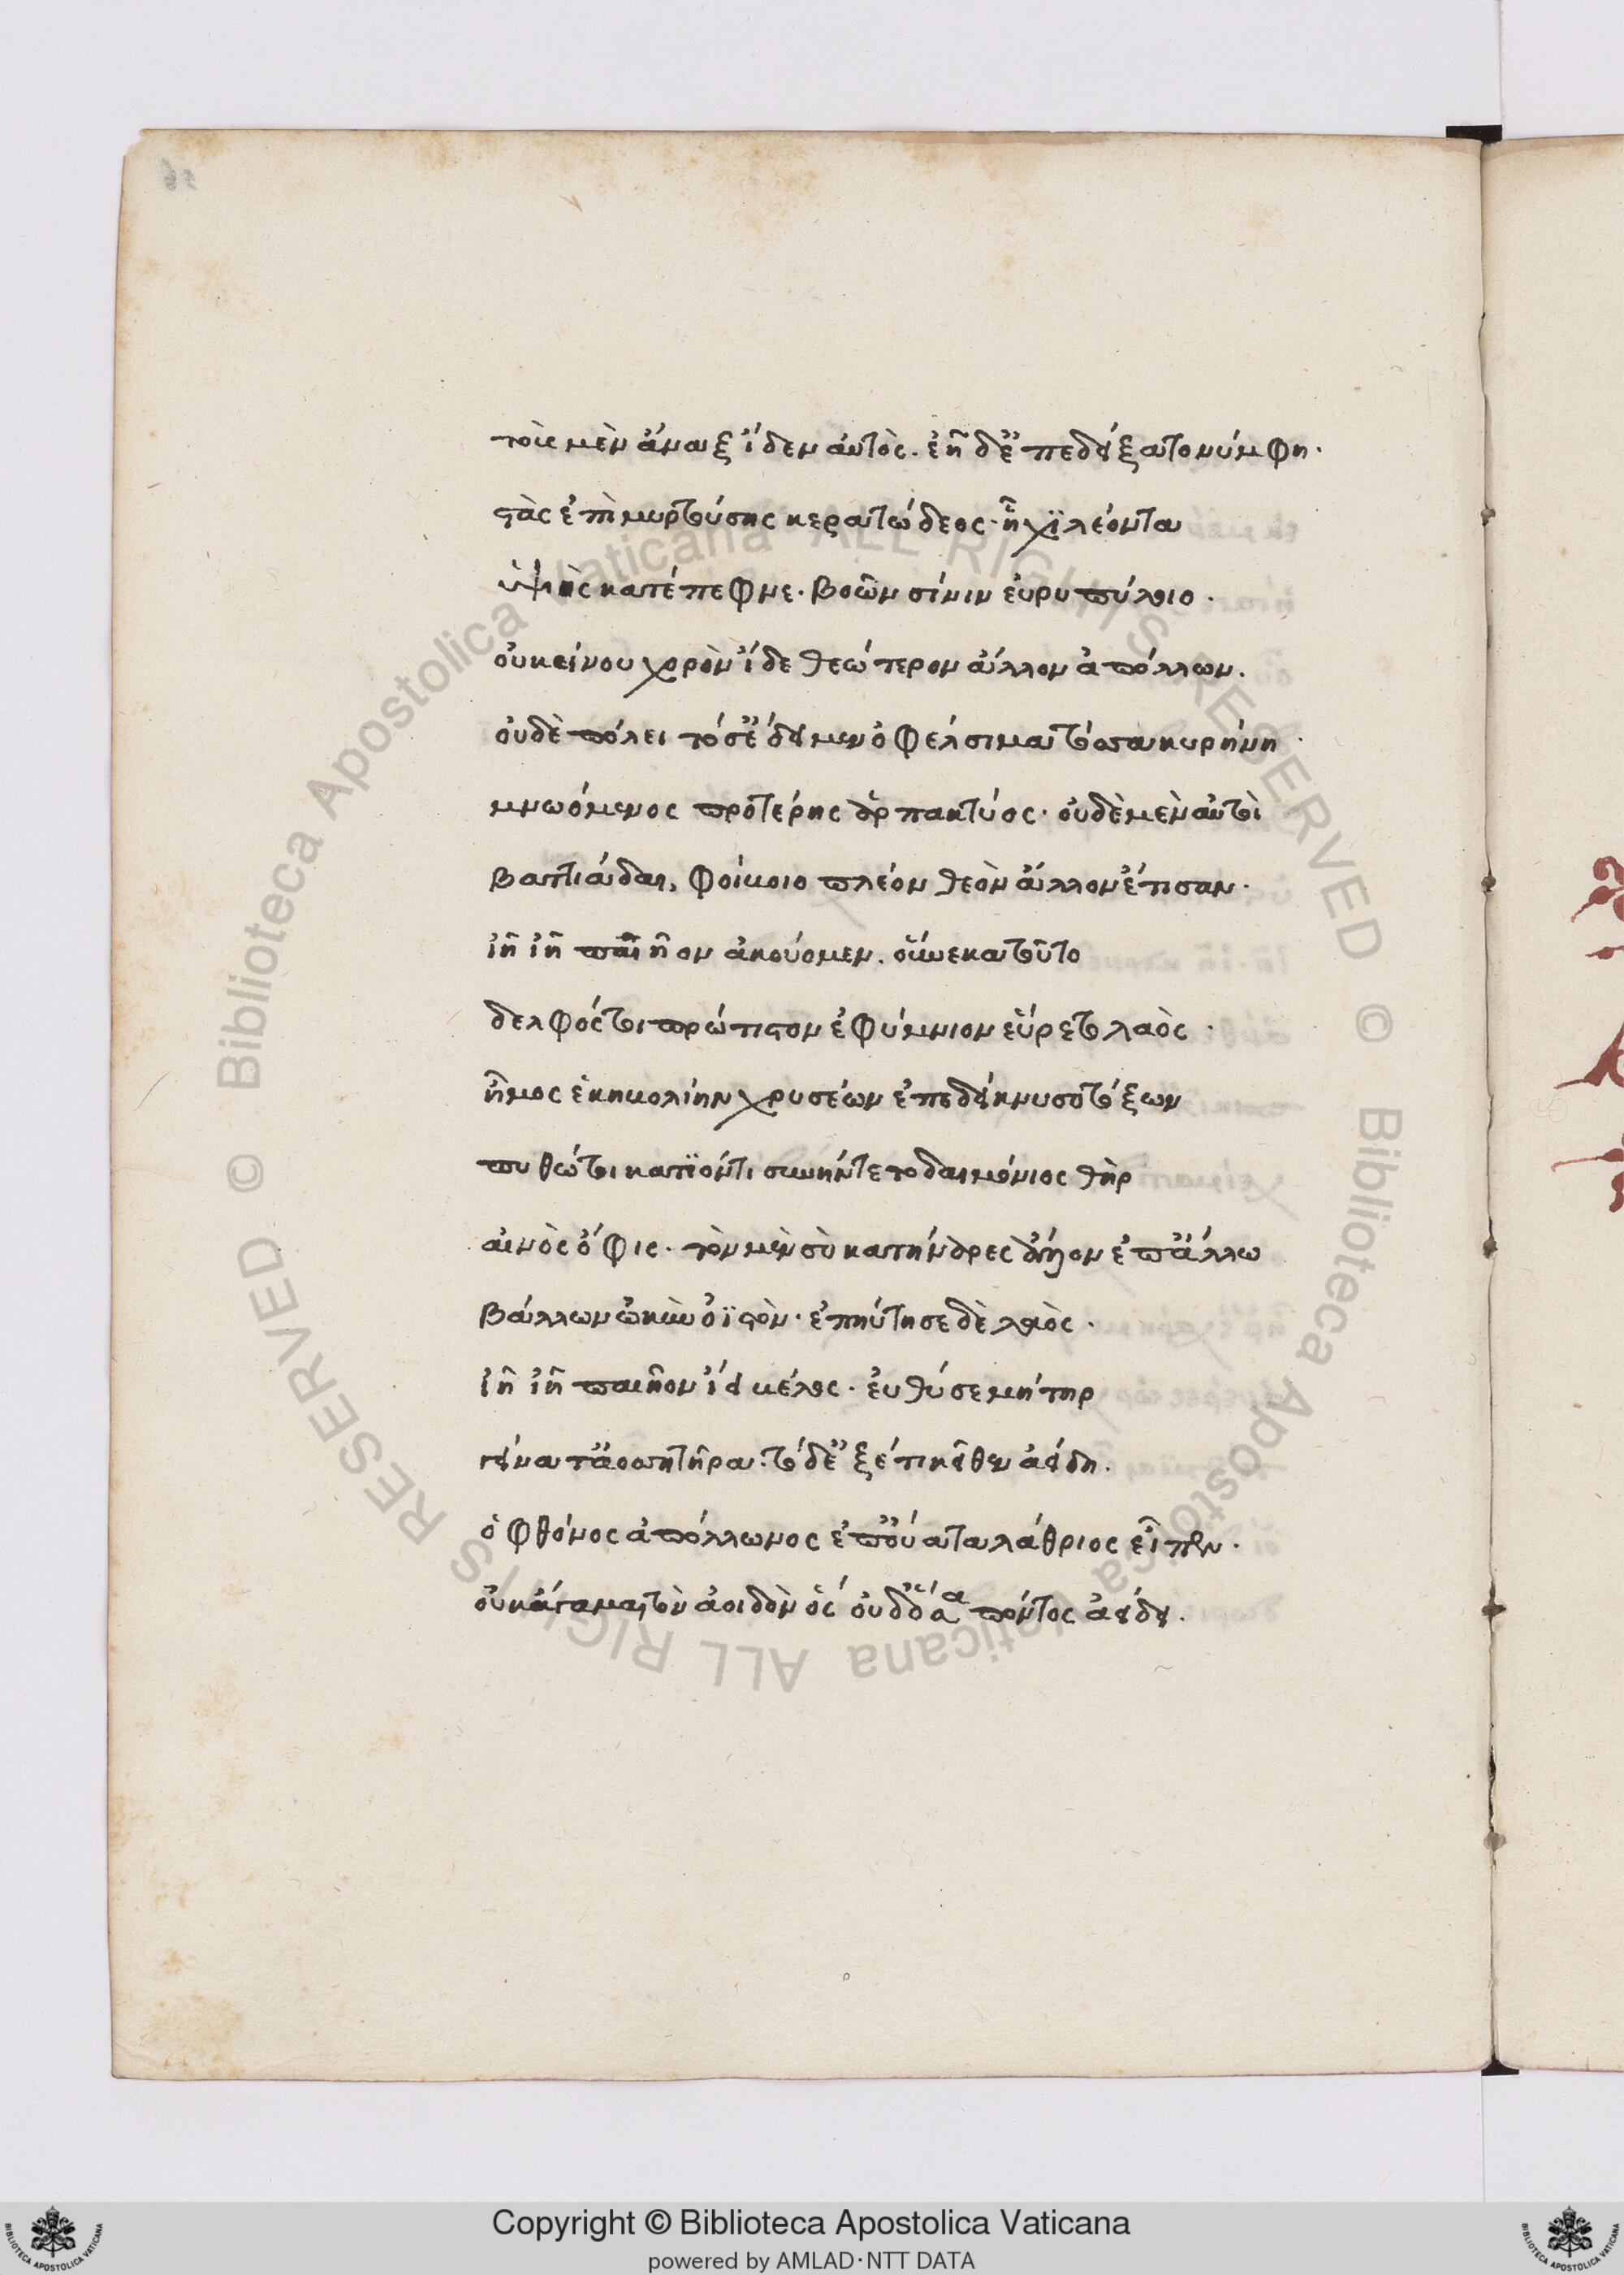 τοὺς μὲν ἄναξ ἴδεν αὐτὸς. ἑῆ δ' ἐπεδείξατο νύμφη.
στὰς ἐπὶ μυρτούσης κερατώδεος. ἧχϊ λέοντα
ὑψηὶς κατέπεφνε. βοῶν σίνιν εὐρυπύλοιο.
οὐ κείνου χορὸν ἴδε θεώτερον ἄλλον ἀπόλλων.
οὐδὲ πόλει τόσ' ἔδειμεν ὀφελσιμα τόσα κυρήνη.
μνωόμενος προτέρης ἁρπακτύος. οὐδὲ μὲν αὐτοὶ
βαττιάδαι, φοίβοιο πλέον θεὸν ἄλλον ἔτισαν.
ἰὴ ἰὴ παιῆον ἀκούομεν. οὕνεκα τοῦτο
δελφός τοι πρώτιστον ἐφύμνιον εὕρετο λαὸς.
ἦμος ἑκηβολίην χρυσέων ἐπεδείκνυσο τόξων
πυθώ τοι κατϊόντι συνήντετο δαιμόνιος θὴρ
αἰνὸς ὄφις. τὸν μὲν σὺ κατήναρες ἄλλον ἐπ' ἄλλω
βάλλων ὠκὺν ὀϊστὸν. ἐπηΰτησε δὲ λαὸς.
ἰὴ ἰὴ παιῆον ἵει βέλος. εὐθύ σε μήτηρ
γείνατ' ἀοσσητῆρα. τὸ δ' ἐξέτι κεῖθεν ἀείδη.
ὁ φθόνος ἀπόλλωνος ἐπ' οὔατα λάθριος εἶπεν.
οὐκ ἄγαμαι τὸν ἀοιδὸν ὅς οὐδ' ὅσα πόντος ἀείδει.
Copyright © Biblioteca Apostolica Vaticana
powered by AMLAD·NTT DATA